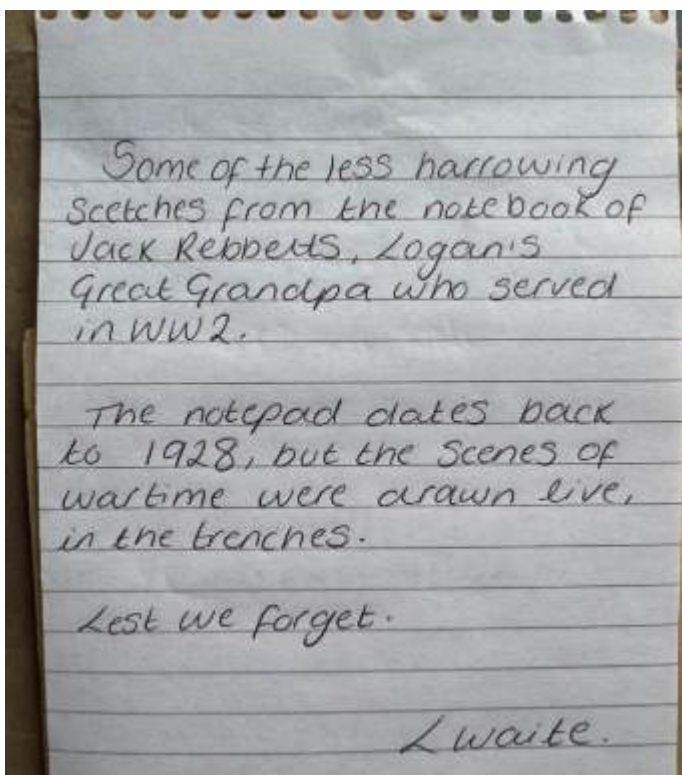 Some of the less harrowing
scetches from the notebook of
Jack Rebbetts, Logan's
Great Grandpa who served
in WW2.
The notepad dates back
to 1928, but the scenes of
wartime were drawn live,
in the trenches.
Lest we forget.
L Waite.